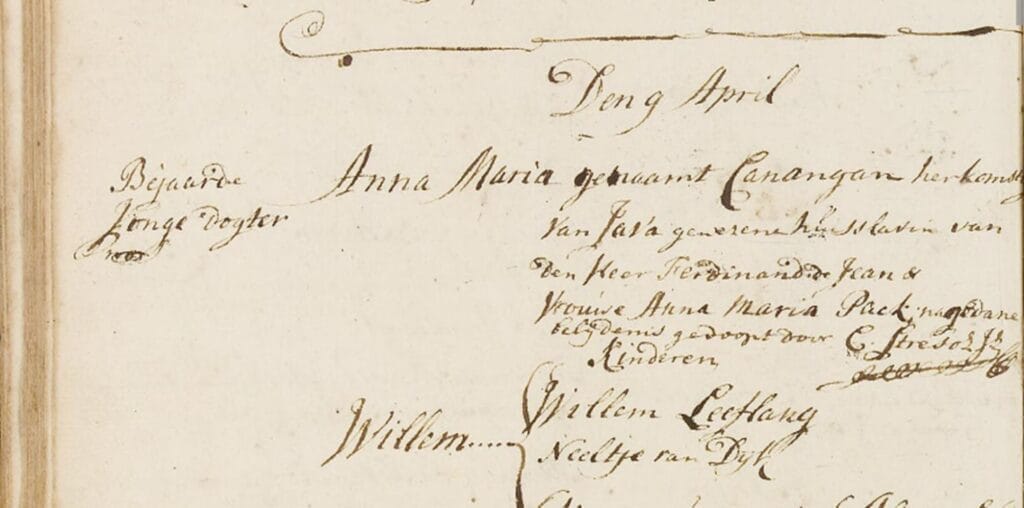 Den 9 April
Bejaarde
Jonge dogter
Anna Maria genaamt Canangan herkomst
van Java gewesene huisslavin van
den Heer Ferdinand de Jean &
Vrouwe Anna Maria Pack, na gedane
belijdenis gedoopt door C. Streso
Kinderen
Willem
Willem Leeflang
Neeltje van Dyk